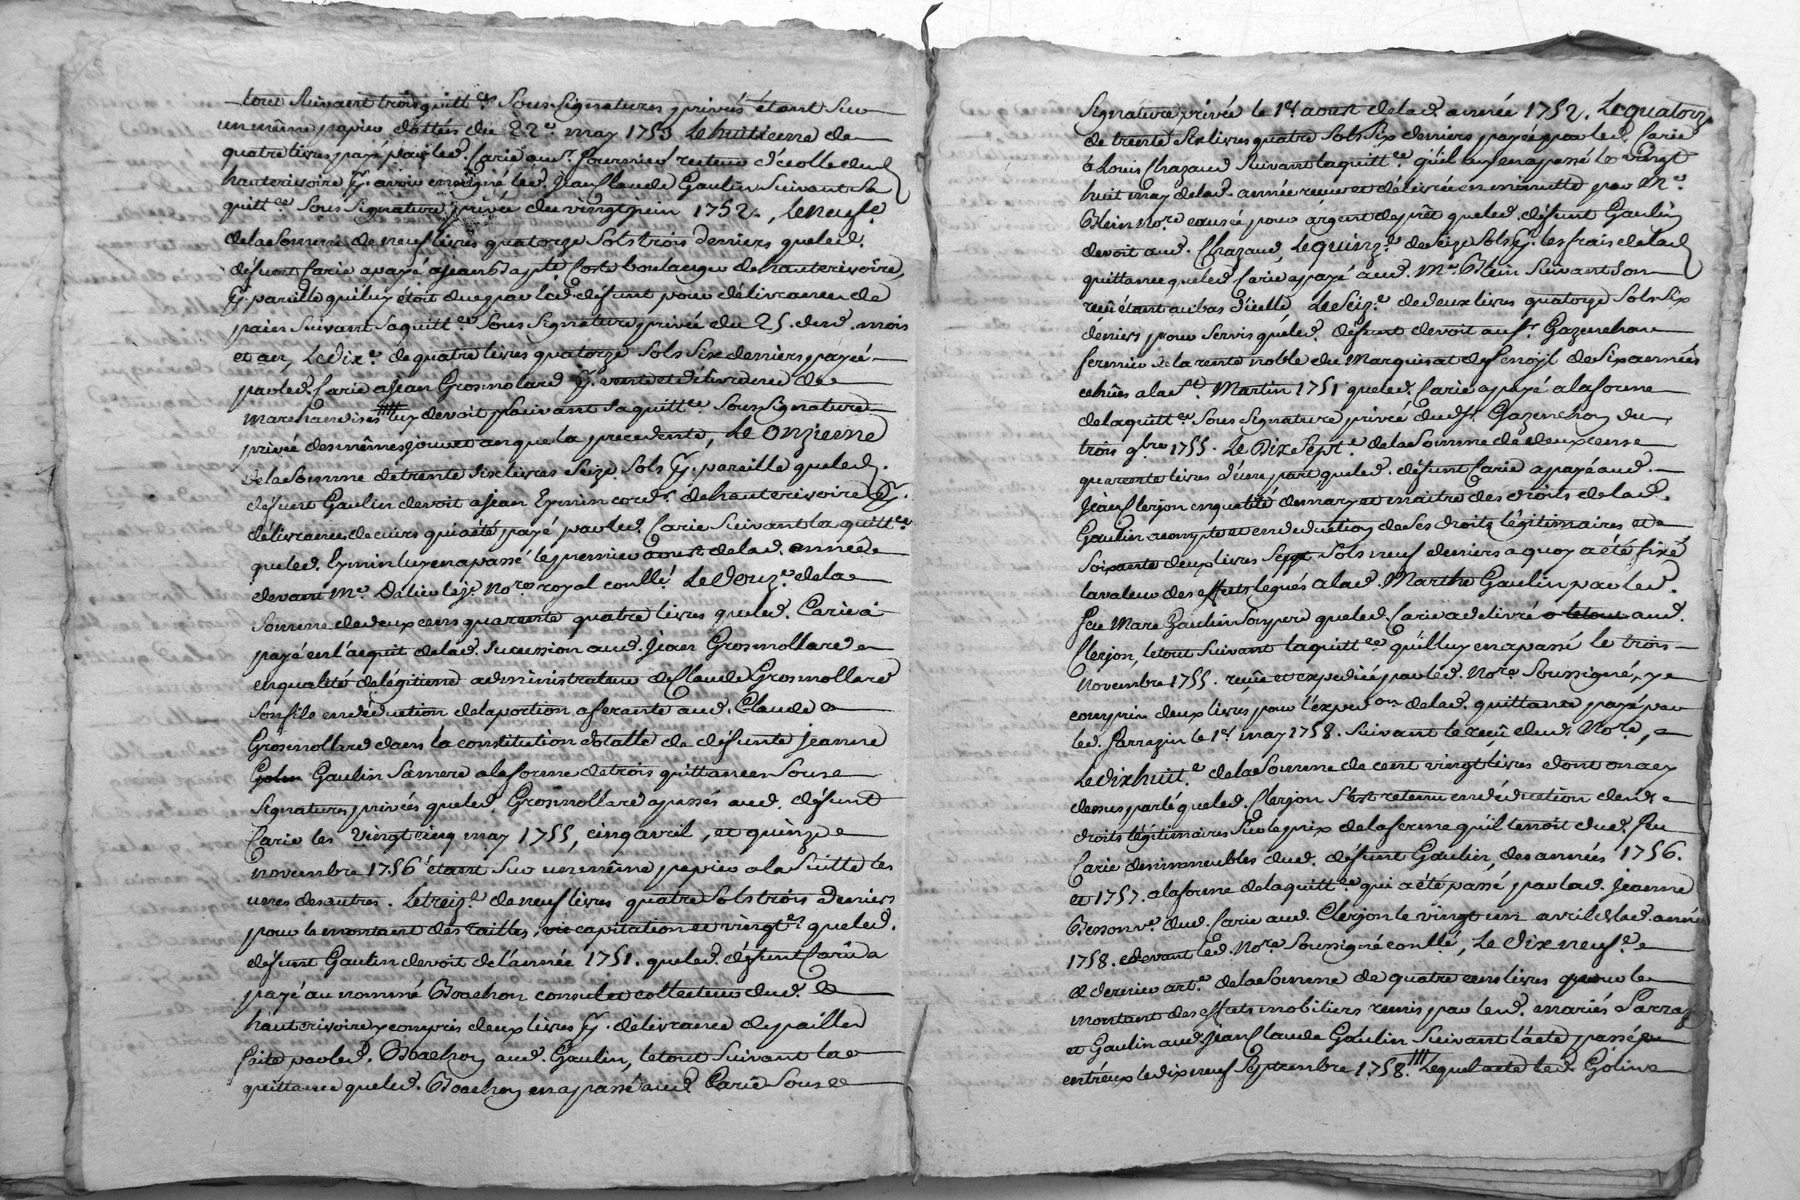 tout suivant trois quitt.ces sous signatures privés étant sur
un même papier dattées du 22e may 1753 le huitieme de
quatre livres payé par led. Carie au sr. fournier recteur d'écolle dud.
hauterivoire pr. avoir enseigné led. Jean Claude Gaulin suivant sa
quitt.ce sous signature privée du vingt juin 1752., le neufe.
de la somme de neuf livres quatorze sols trois deniers que led.
défunt Carie a payé a jean Bapte. Coste boulanger de hauterivoire,
pr. pareille qui luy étoit due par led. défunt pour délivrance de
pain suivant sa quitt.ce sous signature privée du 25. dud. mois
et an, Le dixe. de quatre livres quatorze sols six deniers payé
par led. Carie a jean Grosmolard pr. vente et délivrance de
marchandises luy devoit suivant sa quitt.ce sous signature
privée des mêmes jour et an que la precedente, Le Onzieme
de la somme de trente six livres seize sols pr. pareille que led.
défunt Gaulin devoit a jean Eymin cord.r de hauterivoire pr.
délivrance de cuirs qui a été payé par led. Carie suivant la quitt.ce
que led. Eymin luy en a passé le premier aoust de lad. année
devant Me. Nore. royal coullé. Le Douze. de la
somme de deux cens quarante quatre livres que led. Carie a
payé en l'acquit de lad. sucession aud. Jean Grosmollard
en qualité de légitime administrateur de Claude Grosmollard
son fils en déduction de la portion aferante aud. Claude
Grosmollard dans la constitution dotalle de défunte jeanne
Golin Gaulin sa mere a la forme de trois quittances sous
signatures privées que led. Grosmollard a passés aud. défunt
Carie les vingt cinq may 1755, cinq avril, et quinze
novembre 1756 étant sur un même papier a la suitte les
unes des autres. Le treize. de neuf livres quatre sols trois deniers
pour le montant des tailles, capitation et vingte. que led.
défunt Gaulin devoit de l'année 1751. que led. défunt Carie a
payé au nommé Bouchon consul et collecteur dud.
hauterivoire y compris deux livres pr. délivrance de pailles
faite par led. Bouchon aud. Gaulin, le tout suivant la
quittance que led. Bouchon en a passé aud. Carie sous
signature privée le 1er aoust de lad. année 1752. Le quatorz.
de trente six livres quatre sols six deniers payé par led. Carie
a Louis Chazaud suivant la quitt.ce qu'il luy en a passé le vingt
huit may de lad. année reçue et délivrée en minutte par Me.
Blein Nore. causée pour argent de prêt que led. défunt Gaulin
devoit aud. Chazaud, Le quinze. de seize sols pr. les frais de lad.
quittance que led. Carie a payé aud. Me Blein suivant son
reçu étant au bas d'icelle, Le seize. de deux livres quatorze sols six
deniers pour servis que led. défunt devoit au sr. Gazanchon
fermier de la rente noble du Marquisat de fenoÿl de six années
echües a la St. Martin 1751 que led. Carie a payé a la forme
de la quitt.ce sous signature privée dud. sr. Gazanchon du
trois 9bre 1755. Le Dix septe. de la somme de deux cens
quarante livres d'une part que led. défunt Carie a payé aud.
Jean Clerjon en qualité de mary et maitre des droits de lad.
Gaulin a compte et en déduction de ses droits légitimaires et
soixante deux livres sept sols neuf deniers a quoy a été fixé
la valeur des effets légués a lad. Marthe Gaulin par led.
feu Marc Gaulin son pere que led. Carie a délivré o letout aud.
Clerjon, le tout suivant la quitt.ce qu'il luy en a passé le trois
Novembre 1755. reçue et expediée par led. Nore. soussigné, y
compris deux livres pour l'expeon. de lad. quittance payé par
led. Parrazin le 1er may 1758. suivant le reçu dud. Nore.,
Le dix huite. de la somme de cent vingt livres dont on a cy
dessus parlé que led. Clerjon s'est retenu en déduction de ses
droits légitimaires sur le prix de la ferme qu'il tenoit dud. feu
Carie des immeubles dud. défunt Gaulin, des années 1756.
et 1757. a la forme de la quitt.ce qui a été passé par lad. jeanne
Besson ve. dud. Carie aud. Clerjon le vingt un avril de lad. année
1758. devant led. Nore. soussigné coullé, Le dix neufe.
et dernier arte. de la somme de quatre cens livres pour le
montant des effets mobiliers remis par led. mariés
et Gaulin aud. Jean Claude Gaulin suivant l'acte passé
entr'eux le dix neuf Septembre 1758. lequel acte led. Golin